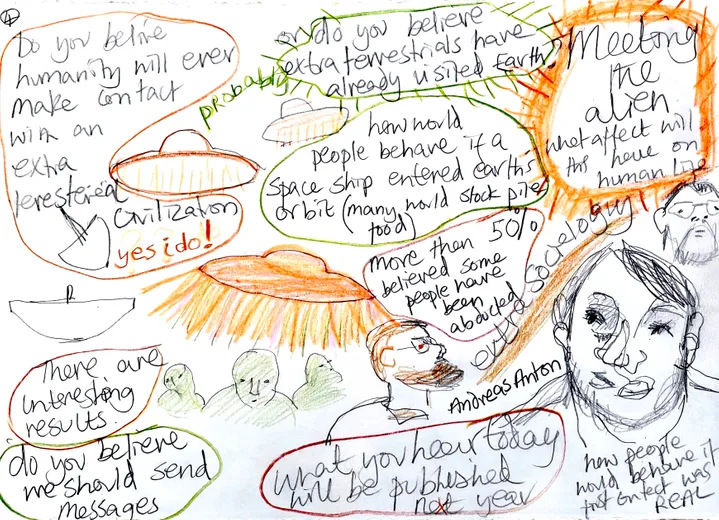 4
Do you belive
humanity will ever
make contact
with an
extra
terestereal
Civilization
yes i do!
probably
or do you believe
extraterrestrials have
already visited Earth?
how would
people behave if a
space ship entered earths
orbit (many would stock pile
food)
Meeting
the
alien
what affect will
this have on
human life
more then 50%
believed some
people have
been
abducted
extra Sociology
Andreas Anton
There are
interesting
results.
do you believe
we should send
messages
what you hear today
will be published
next year
how people
would behave if
first contact was
REAL